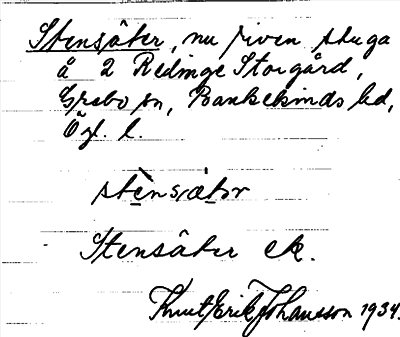 Stensäter, nu riven stuga
å 2 Redinge Storgård,
Grebo sn, Bankekinds hd,
Ög. l.
stènsætər
Stensäter ek.
Knut Erik Johansson 1934.